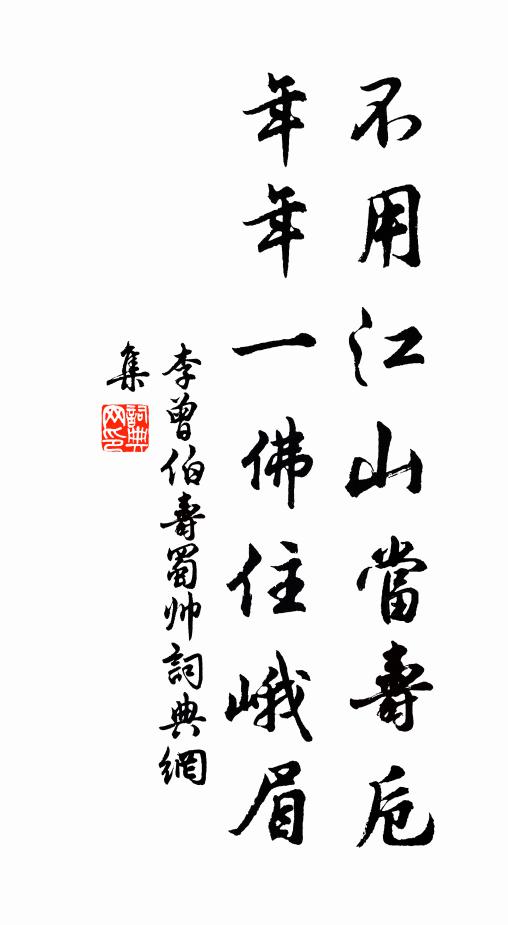 不用江山當壽卮
年年一佛住峨眉
李曾伯壽蜀帅詞典網
集
詞典
网印